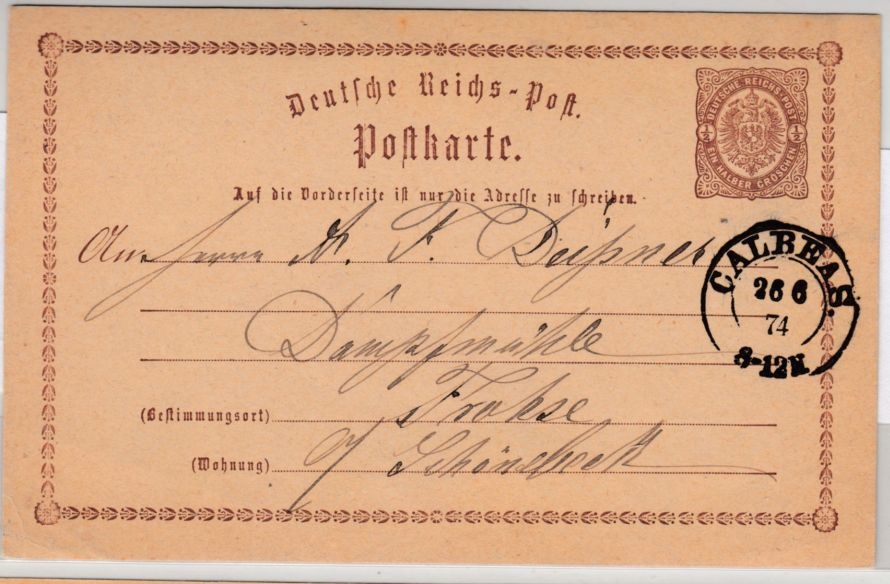 Deutsche Reichs-Post.
Postkarte.
DEUTSCHE REICHS-POST
1/2 1/2
EIN HALBER GROSCHEN
Auf die Vorderseite ist nur die Adresse zu schreiben.
An Herrn A. F.
CALBE A S.
26 6
74
8-12N
Dampfmühle
(Bestimmungsort) Frohse
(Wohnung) a/ Schönebeck